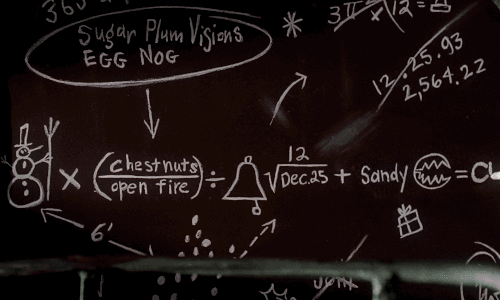 365
3π × √12 =
Sugar Plum Visions
EGG NOG
12.25.93
2,564.22
× (chestnuts/open fire) ÷ 12 √Dec.25 + Sandy = CL
6'